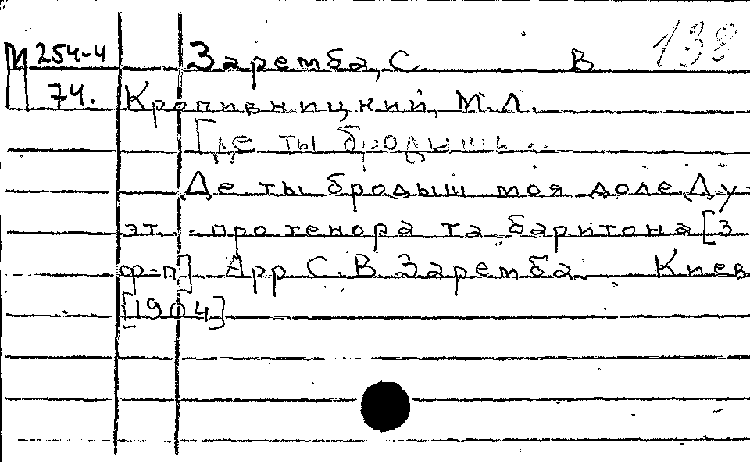 М 254-4 Заремба, С. В 138
74. Кропивницкий, М.Л.
Где ты бродишь...
Де ты бродыш моя доле. Ду
эт про тенора та баритона [з
ф-п] Арр С.В. Заремба. Киев
[1904]